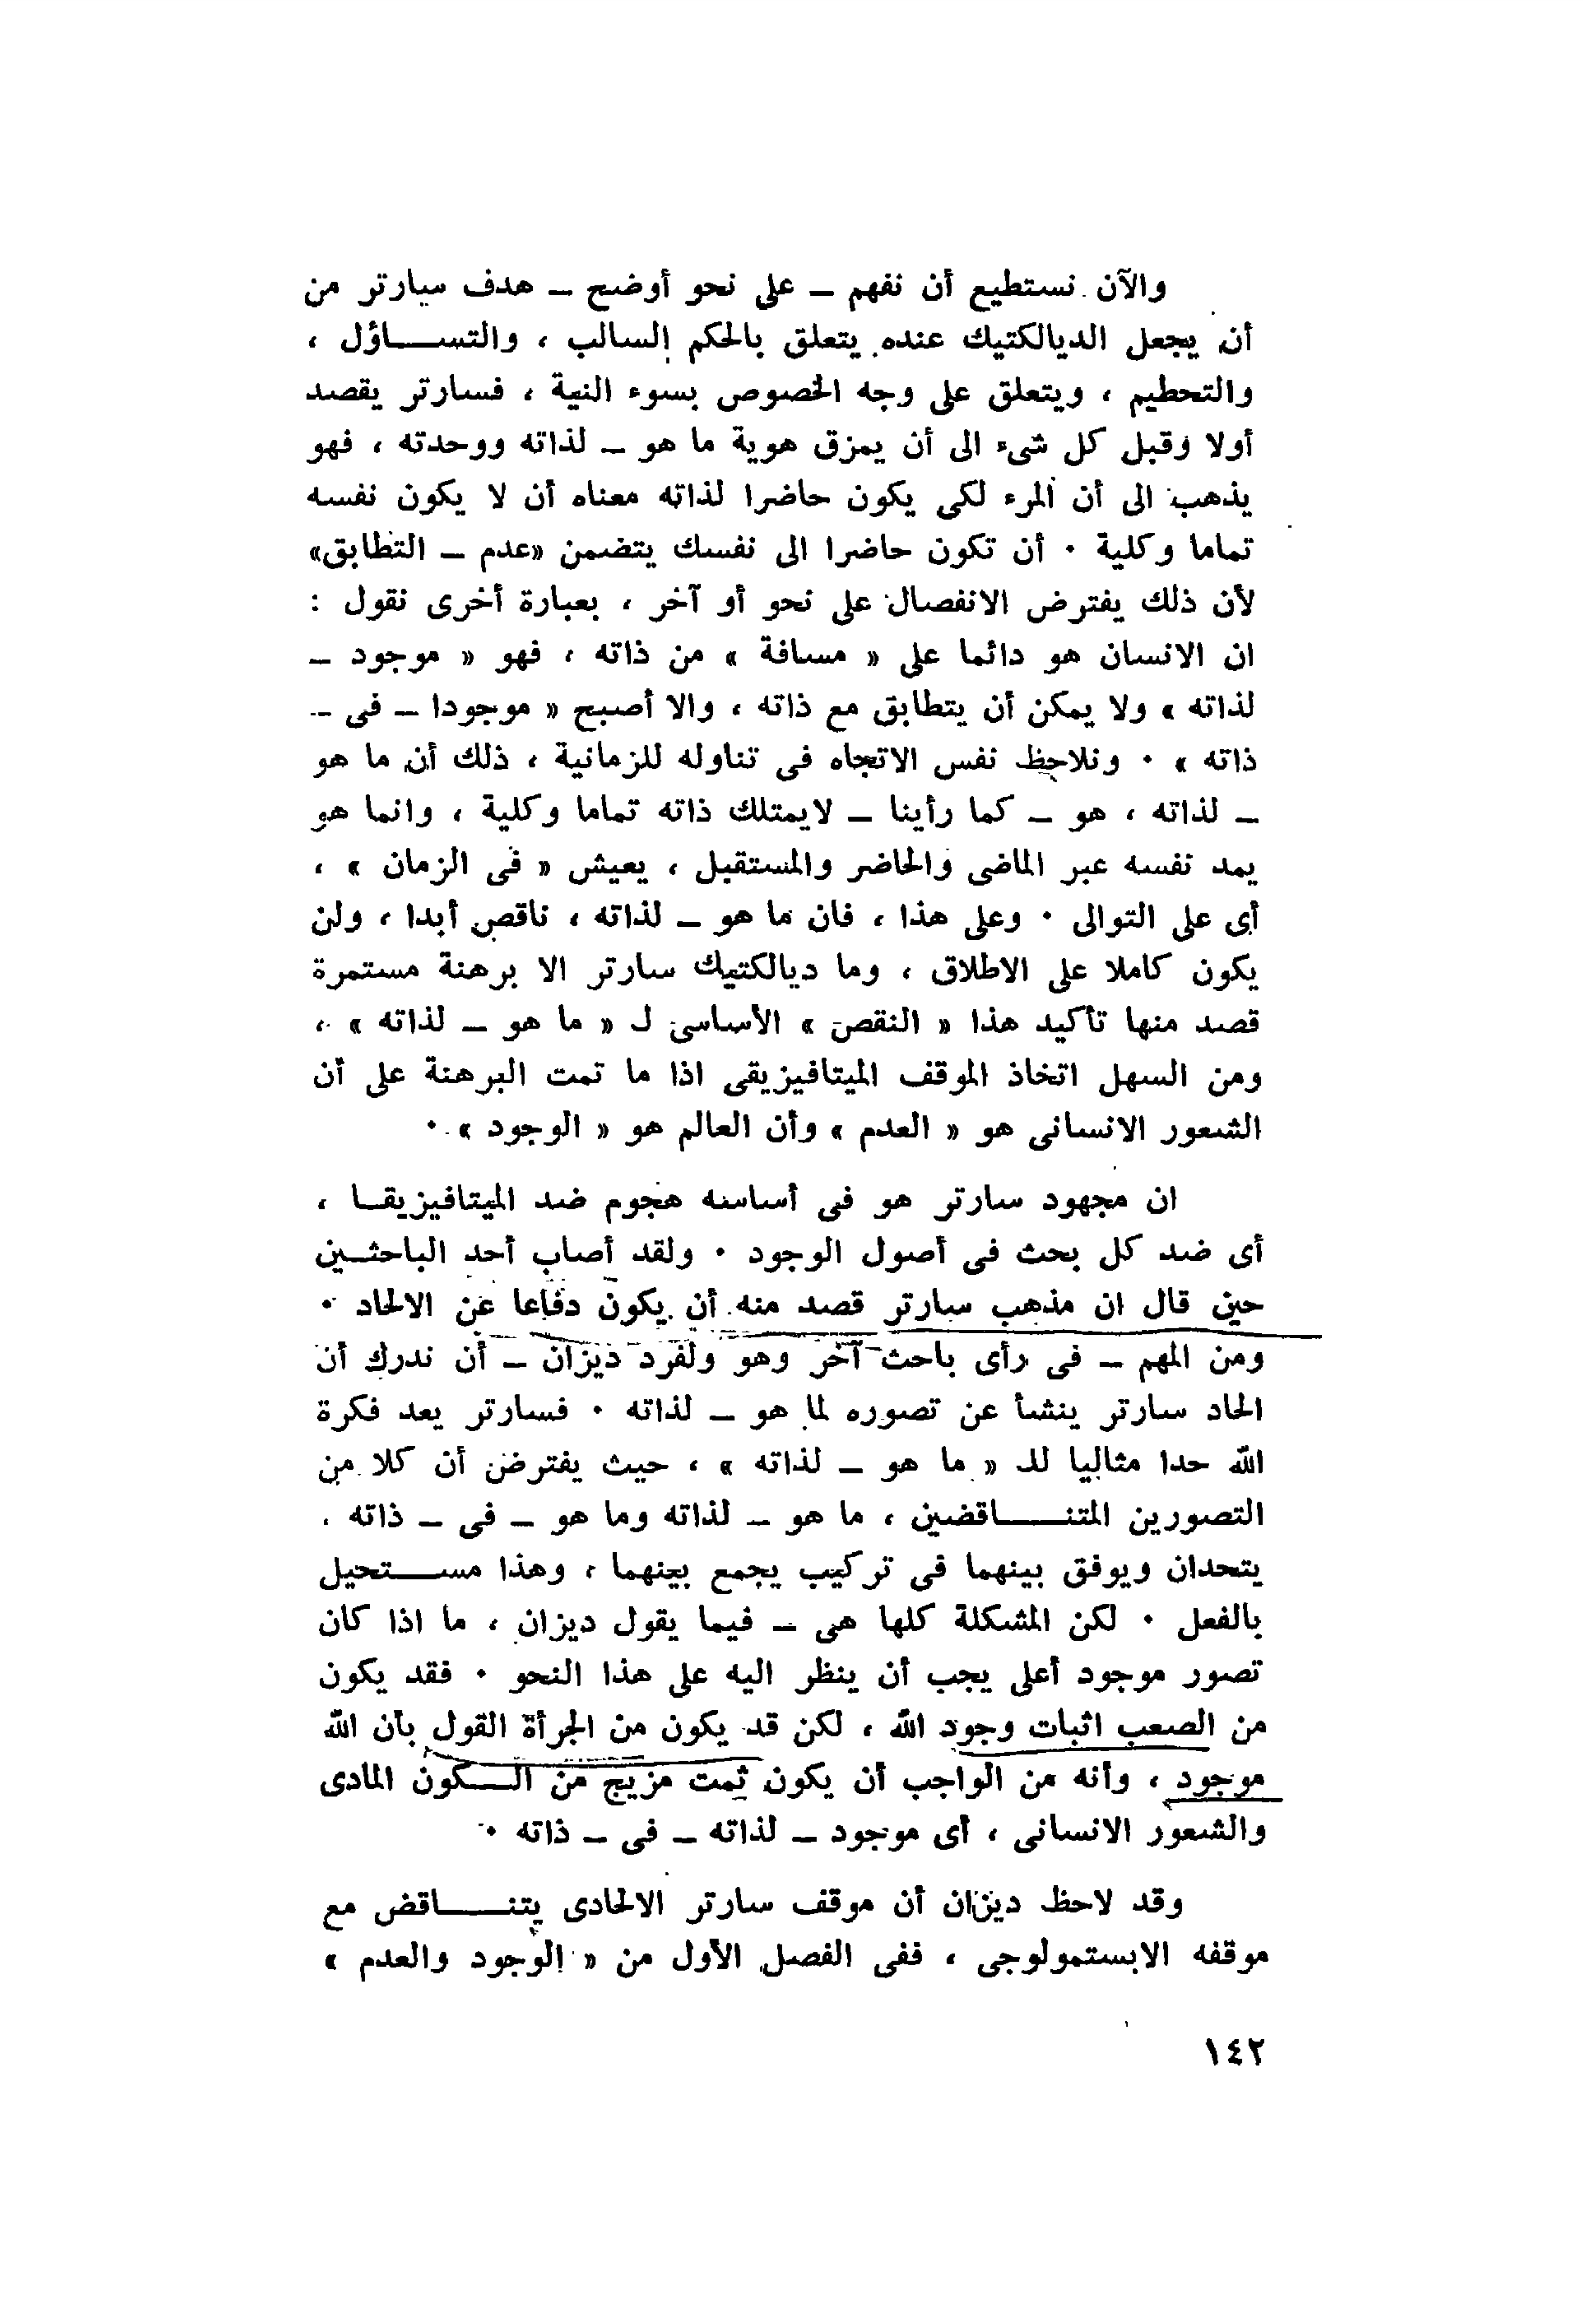 والآن نستطيع أن نفهم – على نحو أوضح – هدف سارتر من
أن يجعل الديالكتيك عنده يتعلق بالحكم السالب ، والتســاؤل ،
والتحطيم ، ويتعلق على وجه الخصوص بسوء النية ، فسارتر يقصد
أولا وقبل كل شىء الى أن يمزق هوية ما هو – لذاته ووحدته ، فهو
يذهب الى أن المرء لكى يكون حاضرا لذاته معناه أن لا يكون نفسه
تماما وكلية ٠ أن تكون حاضرا الى نفسك يتضمن «عدم – التطابق»
لأن ذلك يفترض الانفصال على نحو أو آخر ، بعبارة أخرى نقول :
ان الانسان هو دائما على « مسافة » من ذاته ، فهو « موجود –
لذاته » ولا يمكن أن يتطابق مع ذاته ، والا أصبح « موجودا – فى –
ذاته » ٠ ونلاحظ نفس الاتجاه فى تناوله للزمانية ، ذلك أن ما هو
– لذاته ، هو – كما رأينا – لايمتلك ذاته تماما وكلية ، وانما هو
يمد نفسه عبر الماضى والحاضر والمستقبل ، يعيش « فى الزمان » ،
أى على التوالى ٠ وعلى هذا ، فان ما هو – لذاته ، ناقص أبدا ، ولن
يكون كاملا على الاطلاق ، وما ديالكتيك سارتر الا برهنة مستمرة
قصد منها تأكيد هذا « النقص » الأساسى لـ « ما هو – لذاته » ،
ومن السهل اتخاذ الموقف الميتافيزيقى اذا ما تمت البرهنة على أن
الشعور الانسانى هو « العدم » وأن العالم هو « الوجود » ٠
ان مجهود سارتر هو فى أساسه هجوم ضد الميتافيزيقــا ،
أى ضد كل بحث فى أصول الوجود ٠ ولقد أصاب أحد الباحثــين
حين قال ان مذهب سارتر قصد منه أن يكون دفاعا عن الالحاد ٠
ومن المهم – فى رأى باحث آخر وهو ولفرد ديزان – أن ندرك أن
الحاد سارتر ينشأ عن تصوره لما هو – لذاته ٠ فسارتر يعد فكرة
الله حدا مثاليا للـ « ما هو – لذاته » ، حيث يفترض أن كلا من
التصورين المتنــاقضين ، ما هو – لذاته وما هو – فى – ذاته ،
يتحدان ويوفق بينهما فى تركيب يجمع بينهما ، وهذا مســتحيل
بالفعل ٠ لكن المشكلة كلها هى – فيما يقول ديزان ، ما اذا كان
تصور موجود أعلى يجب أن ينظر اليه على هذا النحو ٠ فقد يكون
من الصعب اثبات وجود الله ، لكن قد يكون من الجرأة القول بأن الله
موجود ، وأنه من الواجب أن يكون ثمت مزيج من الــكون المادى
والشعور الانسانى ، أى موجود – لذاته – فى – ذاته ٠
وقد لاحظ ديزان أن موقف سارتر الالحادى يتنــاقض مع
موقفه الابستمولوجى ، ففى الفصل الأول من « الوجود والعدم »
١٤٢